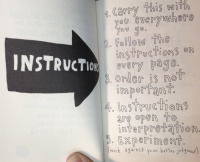 INSTRUCTIONS
1. Carry this with
you everywhere
you go.
2. Follow the
instructions on
every page.
3. Order is not
important.
4. Instructions
are open to
interpretation.
5. Experiment.
(work against your better judgement.)